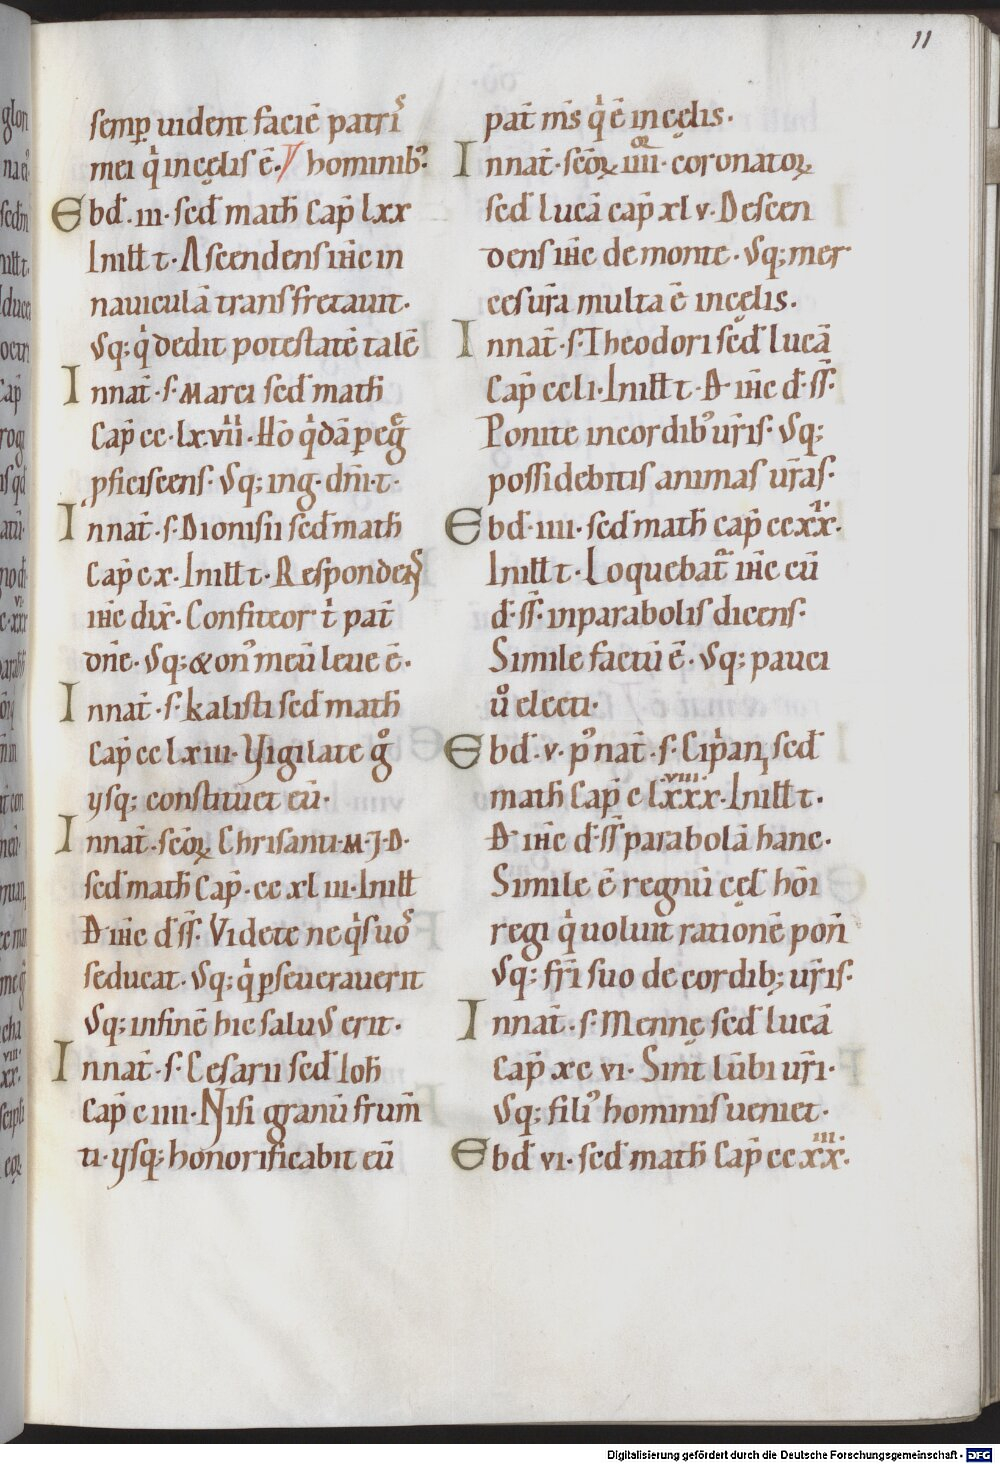 11
semp uident faciē patrˢı
mei qͥ in cęlis ē. hominibꝰ.
Ebd̄. iii. sed̄ math̄ Cap̄ lxx
Initt t. Ascendens ih̄c in
nauiculā transfretauit.
Usq; qͥ dedit potestatē talē
In nat̄. s. Marci sed̄ math̄
Cap̄ cc. lx.vii. Hō qͥdā peg̊
ꝓficiscens. Usq; in g. dn̄i. t.
In nat̄. s. Dionisii sed̄ math̄
Cap̄ cx. Initt t. Respondens
ih̄c dix̄. Confiteor t̄ pat̄
dn̄e. Usq; & onꝰ meū leue ē.
In nat̄. s. kalisti sed̄ math̄
Cap̄ cc lxiii. Vigilate g̊
vsq; constituet eū.
In nat̄. scōꝝ Chrisanti. M. J. D.
sed̄ math̄ Cap̄. cc xl iii. Initt
D. ih̄c d̄. ss̄. Videte ne qͥs uoˢ
seducat. Usq; qͥ ꝑseuerauerit
Usq; in finē hic saluus erit.
In nat̄. s. Cesarii sed̄ Ioh̄
Cap̄ c iiii. Nisi granū frum̄
ti. vsq; honorificabit eū
pat̄ m̄s qͥ ē in cęlis.
In nat̄. scōꝝ iiiior. coronatoꝝ
sed̄ lucā cap̄ xl v. Descen
dens ih̄c de monte. Usq; mer
ces ur̄a multa ē in cęlis.
In nat̄. s. Theodori sed̄ lucā
Cap̄ ccli. Initt t. D. ih̄c d̄. ss̄.
Ponite in cordibꝰ ur̄is. Usq;
possidebitis animas ur̄as.
Ebd̄. iiii. sed̄ math̄ cap̄ ccxx.
Initt t. Loquebat̄ ih̄c cū
d̄. ss̄. in parabolis dicens.
Simile factū ē. Usq; pauci
ů electi.
Ebd̄. v. pꝰ nat̄. s. Cipani sed̄
math̄ Cap̄ c lxxxviii. Initt t.
D. ih̄c d̄. ss̄ parabolā hanc.
Simile ē regnū cęl hōi
regi qͥ uoluit rationē pon̄
Usq; fr̄i suo de cordib; ur̄is.
In nat̄. s. Mennę sed̄ lucā
Cap̄ xc vi. Sint lūbi ur̄i.
Usq; filiꝰ hominis ueniet.
Ebd̄ vi. sed̄ math̄ Cap̄ cc xxiii.
Digitalisierung gefördert durch die Deutsche Forschungsgemeinschaft - DFG